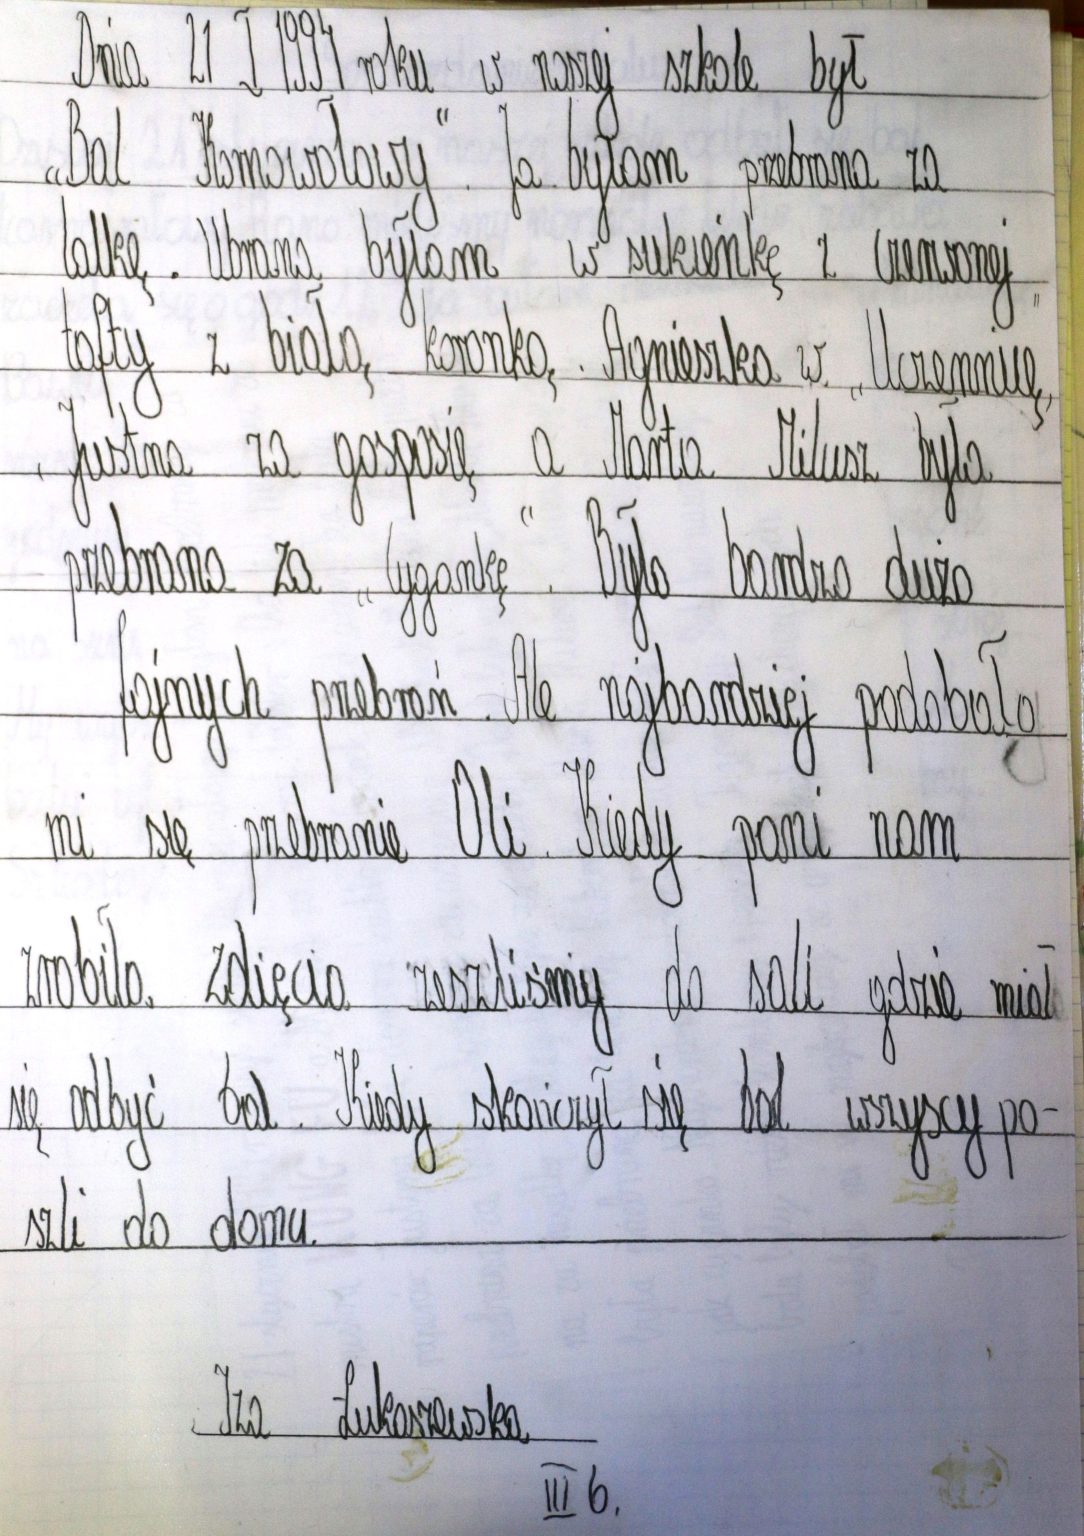 Dnia 21 I 1994 roku w naszej szkole był
„Bal Karnowałowy". Ja byłam przebrana za
lalkę. Ubrana byłam w sukienkę z czerwonej
tafty z białą koronką. Agnieszka w „Uczennicę",
Justna za gosposię a Marta Milusz była
przebrana za „Cygankę". Było bardzo dużo
fajnych przebrań. Ale najbardziej podobało
mi się przebranie Oli. Kiedy pani nam
zrobiła zdięcia zeszliśmy do sali gdzie miał
się odbyć bal. Kiedy skończył się bal wszyscy po-
szli do domu.
Iza Łukaszewska
III b.